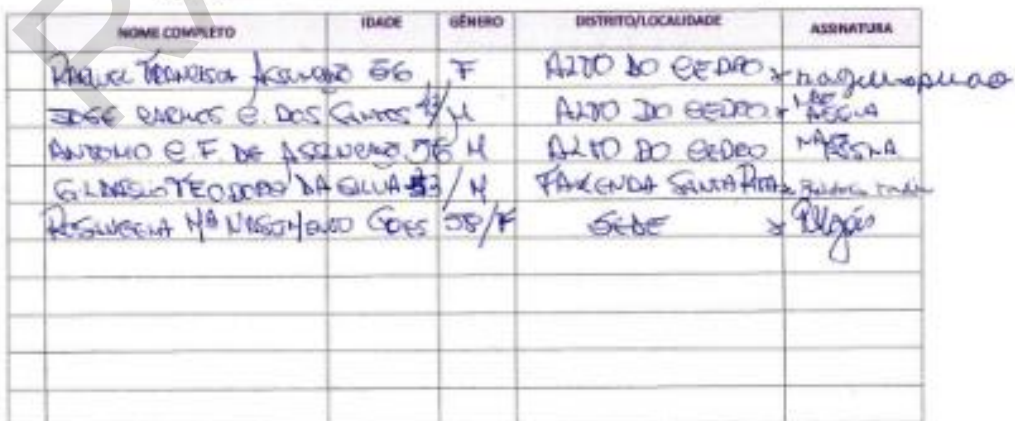 NOME COMPLETO IDADE GÊNERO DISTRITO/LOCALIDADE ASSINATURA
RAQUEL FRANCISCA ASSUNÇÃO 66 F ALTO DO CEDRO
JOSÉ CARLOS C. DOS SANTOS M ALTO DO CEDRO NÃO ASSINA
ANTONIO C. F. DE ASSUNÇÃO 56 M ALTO DO CEDRO NÃO ASSINA
GILDASIO TEODORO DA SILVA /M FAZENDA SANTA RITA
Mª NASCIMENTO GOES 58/F SEDE